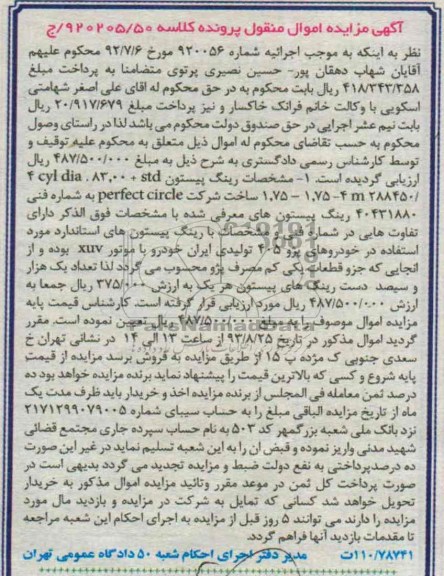 آگهی مزایده اموال منقول پرونده کلاسه ۹۲۰۲۰۵/۵۰/ج
نظر به اینکه به موجب اجرائیه شماره ۹۲۰۰۵۶ مورخ ۹۲/۷/۶ محکوم علیهم
آقایان شهاب دهقان پور- حسین نصیری پرتوی متضامنا به پرداخت مبلغ
۴۱۸/۳۴۳/۳۵۸ ریال بابت محکوم به در حق محکوم له اقای علی اصغر شهامتی
اسکویی با وکالت خانم فرانک خاکسار و نیز پرداخت مبلغ ۲۰/۹۱۷/۶۷۹ ریال
بابت نیم عشر اجرایی در حق صندوق دولت محکوم می باشد لذا در راستای وصول
محکوم به حسب تقاضای محکوم له اموال ذیل متعلق به محکوم علیه توقیف و
توسط کارشناس رسمی دادگستری به شرح ذیل به مبلغ ۴۸۷/۵۰۰/۰۰۰ ریال
ارزیابی گردیده است. ۱- مشخصات رینگ پیستون 4 cyl dia . ۸۳,۰۰ + std
۲۸۸۴۵۰/ m ۴- ۱,۷۵ – ۱,۷۵ ساخت شرکت perfect circle به شماره فنی
۴۰۴۳۱۸۸۰ رینگ پیستون های معرفی شده با مشخصات فوق الذکر دارای
تفاوت هایی در شماره فنی و مشخصات با رینگ پیستون های استاندارد مورد
استفاده در خودروهای پژو ۴۰۵ تولیدی ایران خودرو با موتور xuv بوده و از
انجایی که جزو قطعات یکی کم مصرف پژو محسوب می گردد لذا تعداد یک هزار
و سیصد دست رینگ های پیستون هر یک به ارزش ۳۷۵/۰۰۰ ریال جمعا به
ارزش ۴۸۷/۵۰۰/۰۰۰ ریال مورد ارزیابی قرار گرفته است. کارشناس قیمت پایه
مزایده اموال موصوف را به مبلغ ۴۸۷/۵۰۰/۰۰۰ ریال تعیین نموده است. مقرر
گردید اموال مذکور در تاریخ ۹۳/۸/۲۵ از ساعت ۱۳ الی ۱۴ در نشانی تهران خ
سعدی جنوبی ک مژده پ ۱۵ از طریق مزایده به فروش برسد مزایده از قیمت
پایه شروع و کسی که بالاترین قیمت را پیشنهاد نماید برنده مزایده خواهد بود ده
درصد ثمن معامله فی المجلس از برنده مزایده اخذ و خریدار باید ظرف مدت یک
ماه از تاریخ مزایده الباقی مبلغ را به حساب سیبای شماره ۲۱۷۱۲۹۹۰۷۹۰۰۵
نزد بانک ملی شعبه بزرگمهر کد ۵۰۳ به نام حساب سپرده جاری مجتمع قضائی
شهید مدنی واریز نموده و قبض ان را به این شعبه تسلیم نماید در غیر این صورت
ده درصد پرداختی به نفع دولت ضبط و مزایده تجدید می گردد بدیهی است در
صورت پرداخت کل ثمن در موعد مقرر وتائید مزایده اموال مذکور به خریدار
تحویل خواهد شد کسانی که تمایل به شرکت در مزایده و بازدید مال مورد
مزایده را دارند می توانند ۵ روز قبل از مزایده به اجرای احکام این شعبه مراجعه
تا مقدمات بازدید آنها فراهم گردد.
۱۱۰/۷۸۷۴۱ت مدیر دفتر اجرای احکام شعبه ۵۰ دادگاه عمومی تهران